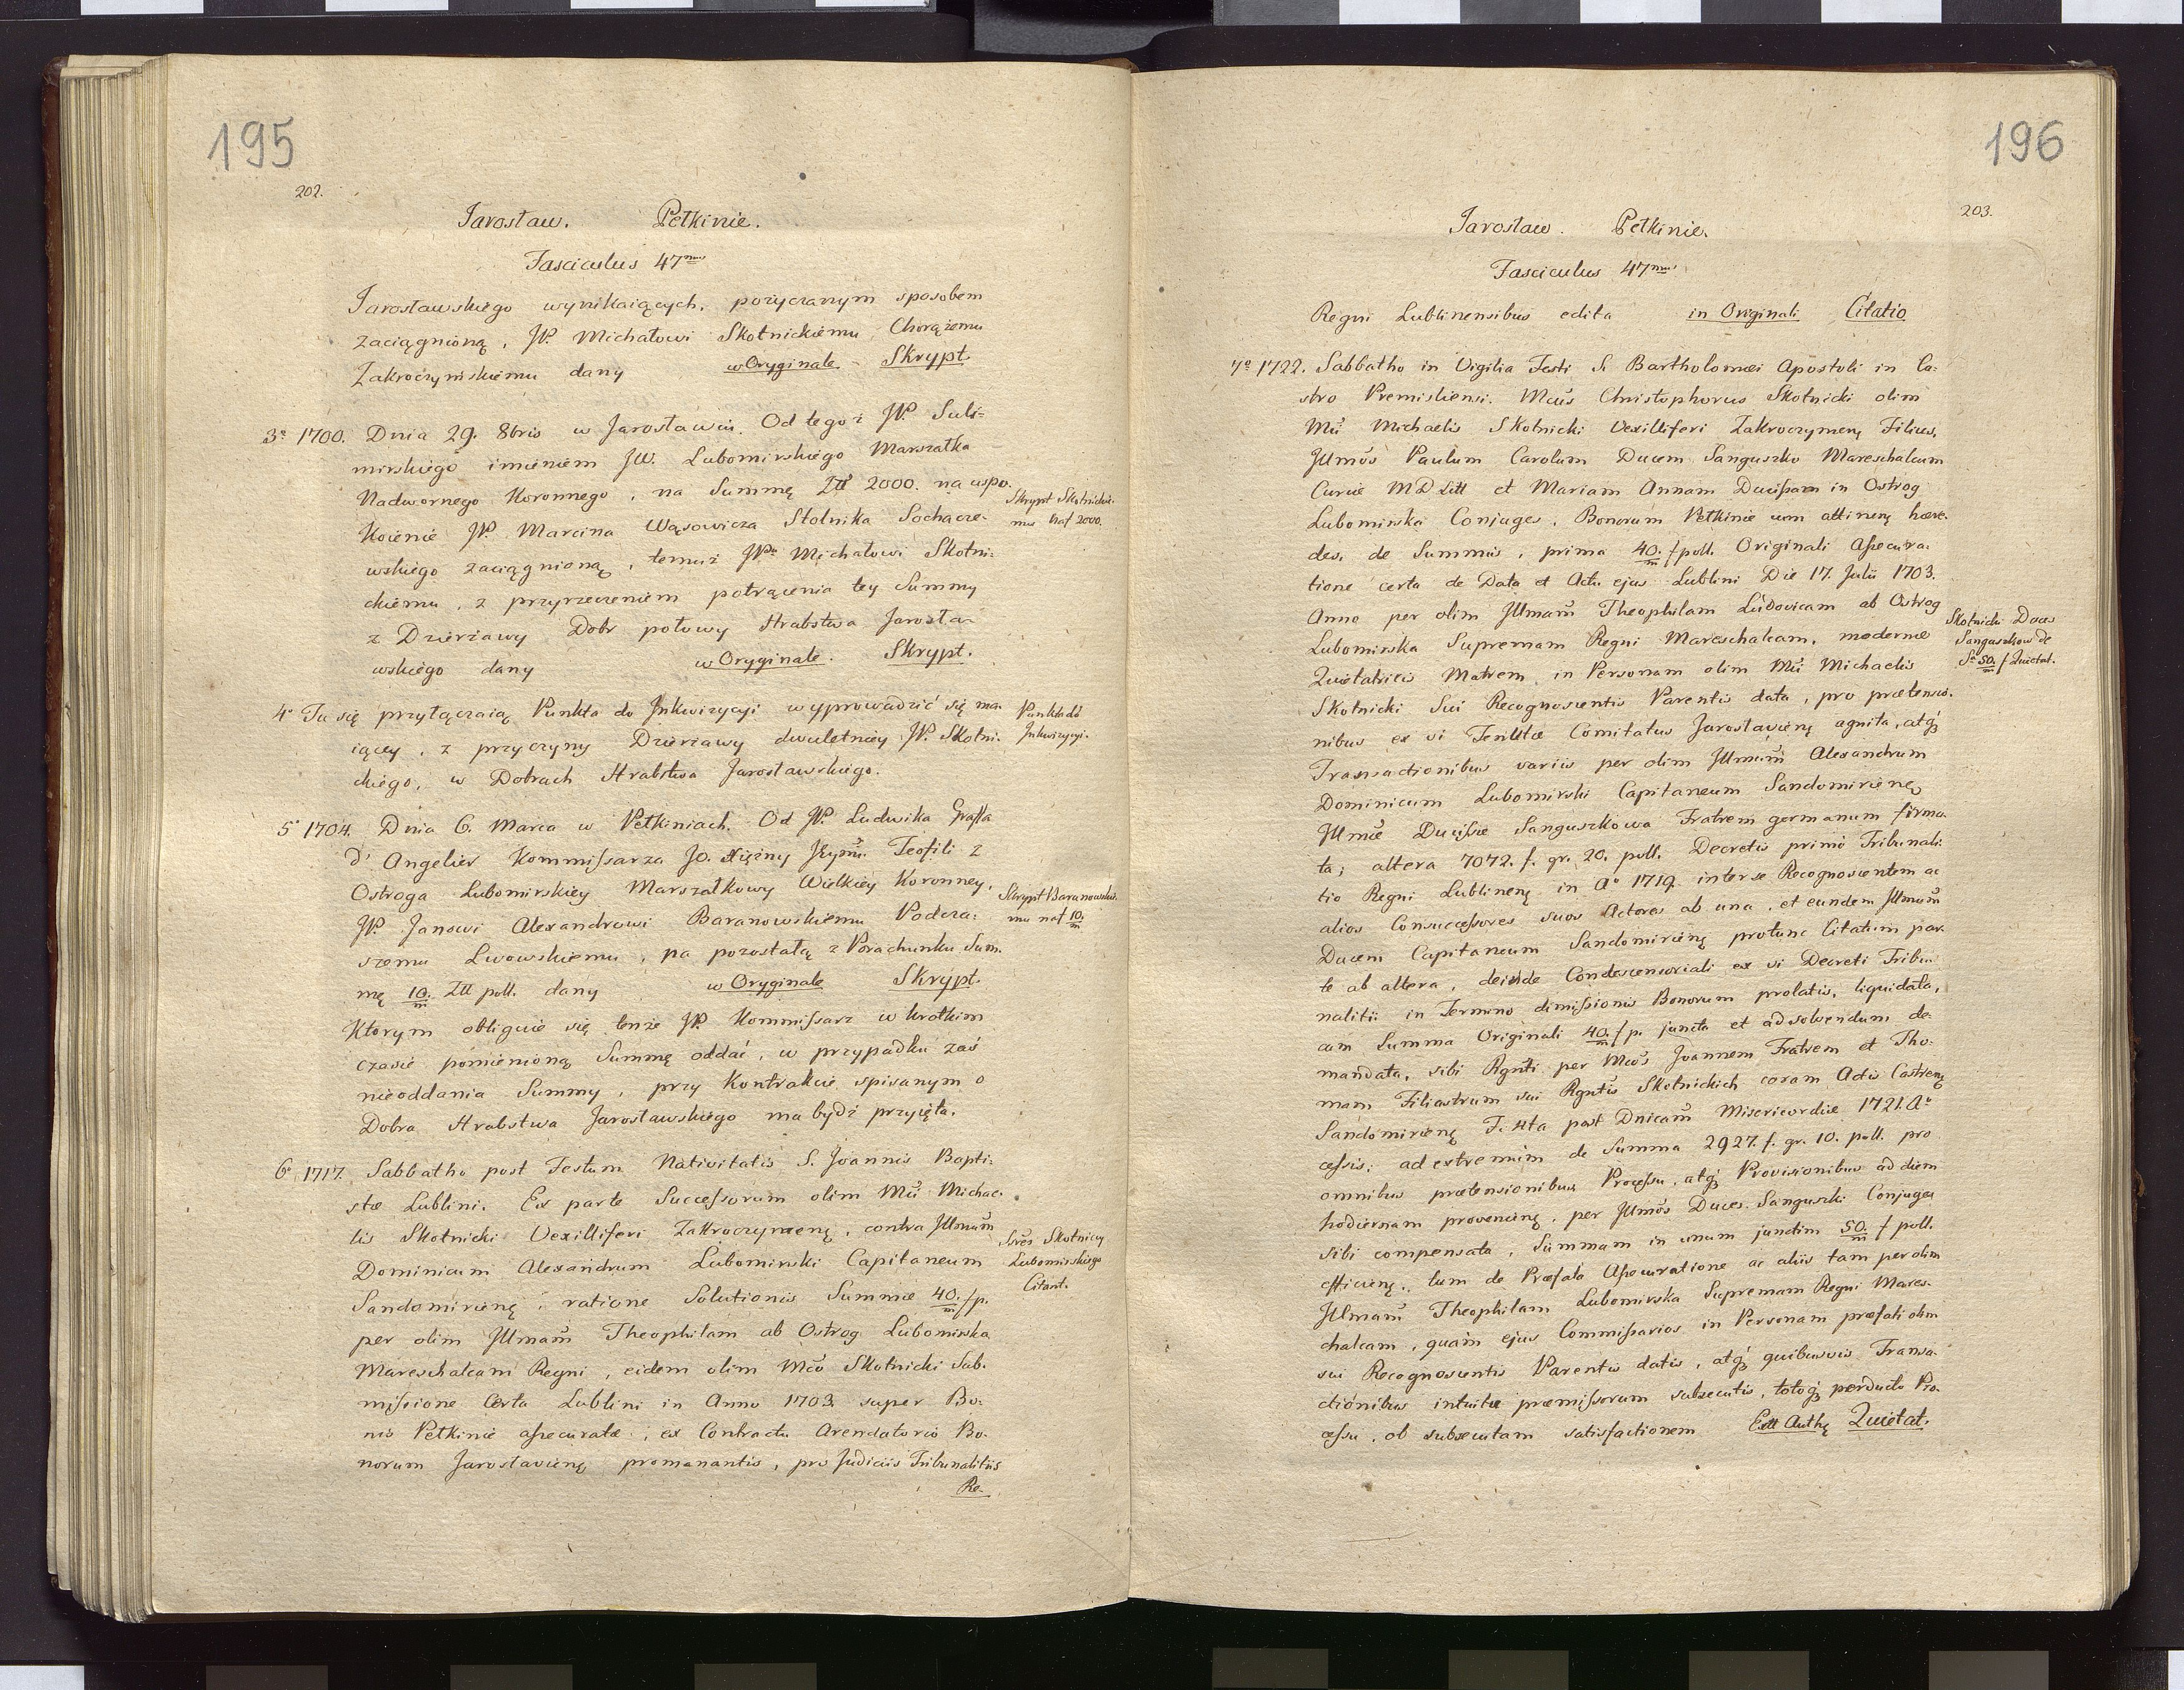 195
202.
Jarosław. Pełkinie.
Fasciculus 47mus
Jarosławskiego wynikaiących, pożyczanym sposobem
zaciągnioną, JP. Michałowi Skotnickiemu Chorążemu
Zakroczymskiemu dany w Oryginale Skrypt.
3o 1700. Dnia 29. 8bris w Jarosławiu. Od tegoż JP. Suli=
mirskiego imieniem JW. Lubomirskiego Marszałka
Nadwornego Koronnego, na Summę Złł 2000. na uspo.
Skrypt Skotnickie.
koienie JP. Marcina Wąsowicza Stolnika Sochacze-
mu naf 2000.
wskiego zaciągnioną, temuż JPu Michałowi Skotni-
ckiemu, z przyrzeczeniem potrącenia tey Summy
z Dzierżawy Dobr połowy Hrabstwa Jarosła-
wskiego dany w Oryginale. Skrypt.
4o Tu się przyłączaią Punkta do Jnkwizycyi wyprowadzić się ma.
Punkta do
iącey, z przyczyny Dzierżawy dwuletniey JP. Skotni.
Jnkwizycyi.
ckiego, w Dobrach Hrabstwa Jarosławskiego.
5o 1704. Dnia 6. Marca w Pełkiniach. Od JP. Ludwika Graffa
d' Angelier Kommissarza JO. Xiężny Jeymci Teofili z
Ostroga Lubomirskiey Marszałkowy Wielkiey Koronney,
Skrypt Baranowskie.
JP. Janowi Alexandrowi Baranowskiemu Podcza=
mu naf 10.
m
szemu Lwowskiemu, na pozostałą z Porachunku Sum.
mę 10. Złł poll. dany w Oryginale Skrypt.
m
Ktorym obliguie się tenże JP. Kommissarz w krotkim
czasie pomienioną Summę oddać, w przypadku zaś
nieoddania Summy, przy Kontrakcie spisanym o
Dobra Hrabstwa Jarosławskiego ma bydź przyięta.
6o 1717. Sabbatho post Festum Nativitatis S. Joannis Bapti=
stæ Lublini. Ex parte Successorum olim Mci Michae.
lis Skotnicki Vexilliferi Zakroczymenę, contra Jllmum
Sśres Skotniccy
Dominicum Alexandrum Lubomirski Capitaneum
Lubomirskiego
Sandomirienę, ratione Solutionis Summæ 40. f p.
m
Citant.
per olim Jllmam Theophilam ab Ostrog Lubomirska
Mareschalcam Regni, eidem olim Mco Skotnicki Sub.
missione Certa Lublini in Anno 1703 super Bo.
nis Pełkinie assecuratæ, ex Contractu Arendatorio Bo.
norum Jaroslavienę promanantis, pro Judiciis Tribunalitiis
Re-
196
203.
Jarosław. Pełkinie.
Fasciculus 47mus
Regni Lublinensibus edita in Originali Citatio
7o 1722. Sabbatho in Vigilia Festi S. Bartholomæi Apostoli in Ca=
stro Premisliensi. Mcus Christophorus Skotnicki olim
Mci Michaelis Skotnicki Vexilliferi Zakroczymenę Filius,
Jllmos Paulum Carolum Ducem Sanguszko Mareschalcum
Curiæ MDLitt et Mariam Annam Ducissam in Ostrog
Lubomirska Conjuges, Bonorum Pełkinie cum attinenę hære.
des, de Summis, prima 40. f poll. Originali Assecura.
m
tione certa de Data et Actu ejus Lublini Die 17. Julii 1703.
Anno per olim Jllmam Theophilam Ludovicam ab Ostrog
Skotnicki Duces
Lubomirska Supremam Regni Mareschalcam, modernæ
Sanguszkow de
Quietatricis Matrem, in Personam olim Mci Michaelis
Sa 50. f Quietat.
m
Skotnicki Sui Recognoscentis Parentis data, pro prætensio.
nibus ex vi Tenutæ Comitatus Jaroslavienę agnita, atq́
Transactionibus variis per olim Jllmum Alexandrum
Dominicum Lubomirski Capitaneum Sandomirienę
Jllmæ Ducissæ Sanguszkowa Fratrem germanum firma.
ta; altera 7072. f. gr. 20. poll. Decretis primo Tribunali.
tio Regni Lublinenę in Ao 1719. inter se Recognoscentem ac
alios Consuccessores suos Actores ab una, et eundem Jllmum
Ducem Capitaneum Sandomirienę protunc Citatum par.
te ab altera, deinde Condescensoriali ex vi Decreti Tribu.
nalitii in Termino dimissionis Bonorum prolatis, liquidata,
cum Summa Originali 40. f p. juncta et adsolvendum de.
m
mandata, sibi Rgnti per Mcos Joannem Fratrem et Tho.
mam Filiastrum sui Rgntis Skotnickich coram Actis Castrenę
Sandomirienę F. 4ta post Dnicam Misericordiæ 1721. Ao
cessis; ad extremum de Summa 2927. f. gr. 10. poll. pro
omnibus prætensionibus Processu, atq́ Provisionibus ad diem
hodiernam provenienę, per Jllmos Duces Sanguszki Conjuges
sibi compensata, Summam in unum junctim 50. f poll.
m
efficienę, tum de Præfata Assecuratione ac aliis tam per olim
Jllmam Theophilam Lubomirska Supremam Regni Mares-
chalcam, quam ejus Commissarios in Personam præfati olim
sui Recognoscentis Parentis datis, atq́ quibusvis Transa-
ctionibus intuitu præmissorum subsecutis, totoq́ perducto Pro.
cessu, ob subsecutam satisfactionem Extt Authę Quietat.